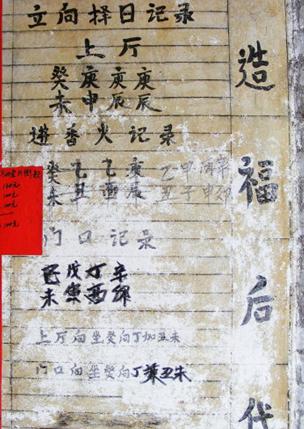 立向择日记录
上厅
癸庚庚庚
未申辰辰
进香火记录
癸乙乙庚 乙甲
未丑酉辰 丑子申卯
门口记录
己戊丁辛
未寅酉卯
上厅向坐癸向丁加丑未
门口向坐癸向丁兼丑未
造福后代